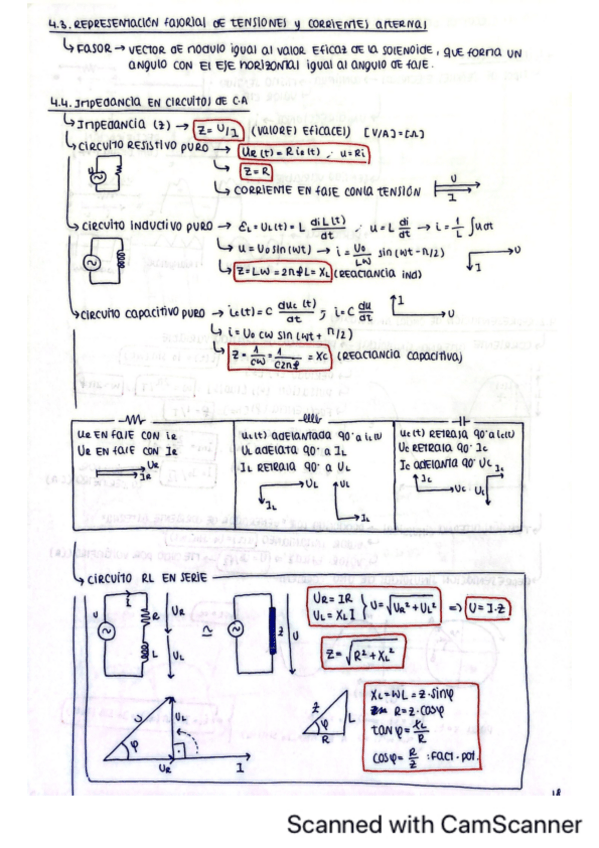 4.3. REPRESENTACIÓN FASORIAL DE TENSIONES y CORRIENTES ALTERNAS
↳ FASOR → VECTOR DE MODULO IGUAL AL VALOR EFICAZ DE LA SOIENOIDE, QUE FORMA UN
ANGULO CON EL EJE HORIZONTAL IGUAL AL ANGULO DE FASE.
4.4. IMPEDANCIA EN CIRCUITOS DE C.A
↳ IMPEDANCIA (Z) → Z = U/I (VALORES EFICACES) [V/A]=[Ω]
↳ CIRCUITO RESISTIVO PURO → UR(t) = R iR(t) ; u=Ri
↳ Z=R
↳ CORRIENTE EN FASE CON LA TENSIÓN U I
↳ CIRCUITO INDUCTIVO PURO → EL = UL(t) = L diL(t)/dt ; u = L di/dt → i = 1/L ∫u dt
↳ u = U0 sin(wt) → i = U0/LW sin(wt-π/2) U I
↳ Z = LW = 2πfL = XL (REACTANCIA IND)
↳ CIRCUITO CAPACITIVO PURO → ic(t) = C duc(t)/dt ; i = C du/dt I U
↳ i = U0 CW sin(wt + π/2)
↳ Z = 1/CW = 1/C2πf = XC (REACTANCIA CAPACITIVA)
UR EN FASE CON iR
UR EN FASE CON IR
UR
IR
UL(t) ADELANTADA 90° a iL(t)
UL ADELATA 90° a IL
IL RETRASA 90° a UL
UL UL
IL IL
UC(t) RETRASA 90° a iC(t)
UC RETRASA 90° IC
IC ADELANTA 90° UC
IC UC UC IC
↳ CIRCUITO RL EN SERIE
U I R L UR UL ≃ Z U
UR = IR
UL = XL I
U = √(UR² + UL²) => U = I·Z
Z = √(R² + XL²)
U UL φ UR I
Z L φ R
XL = WL = Z·sinφ
R = Z·cosφ
tan φ = XL/R
cosφ = R/Z : FACT. POT.
18
Scanned with CamScanner